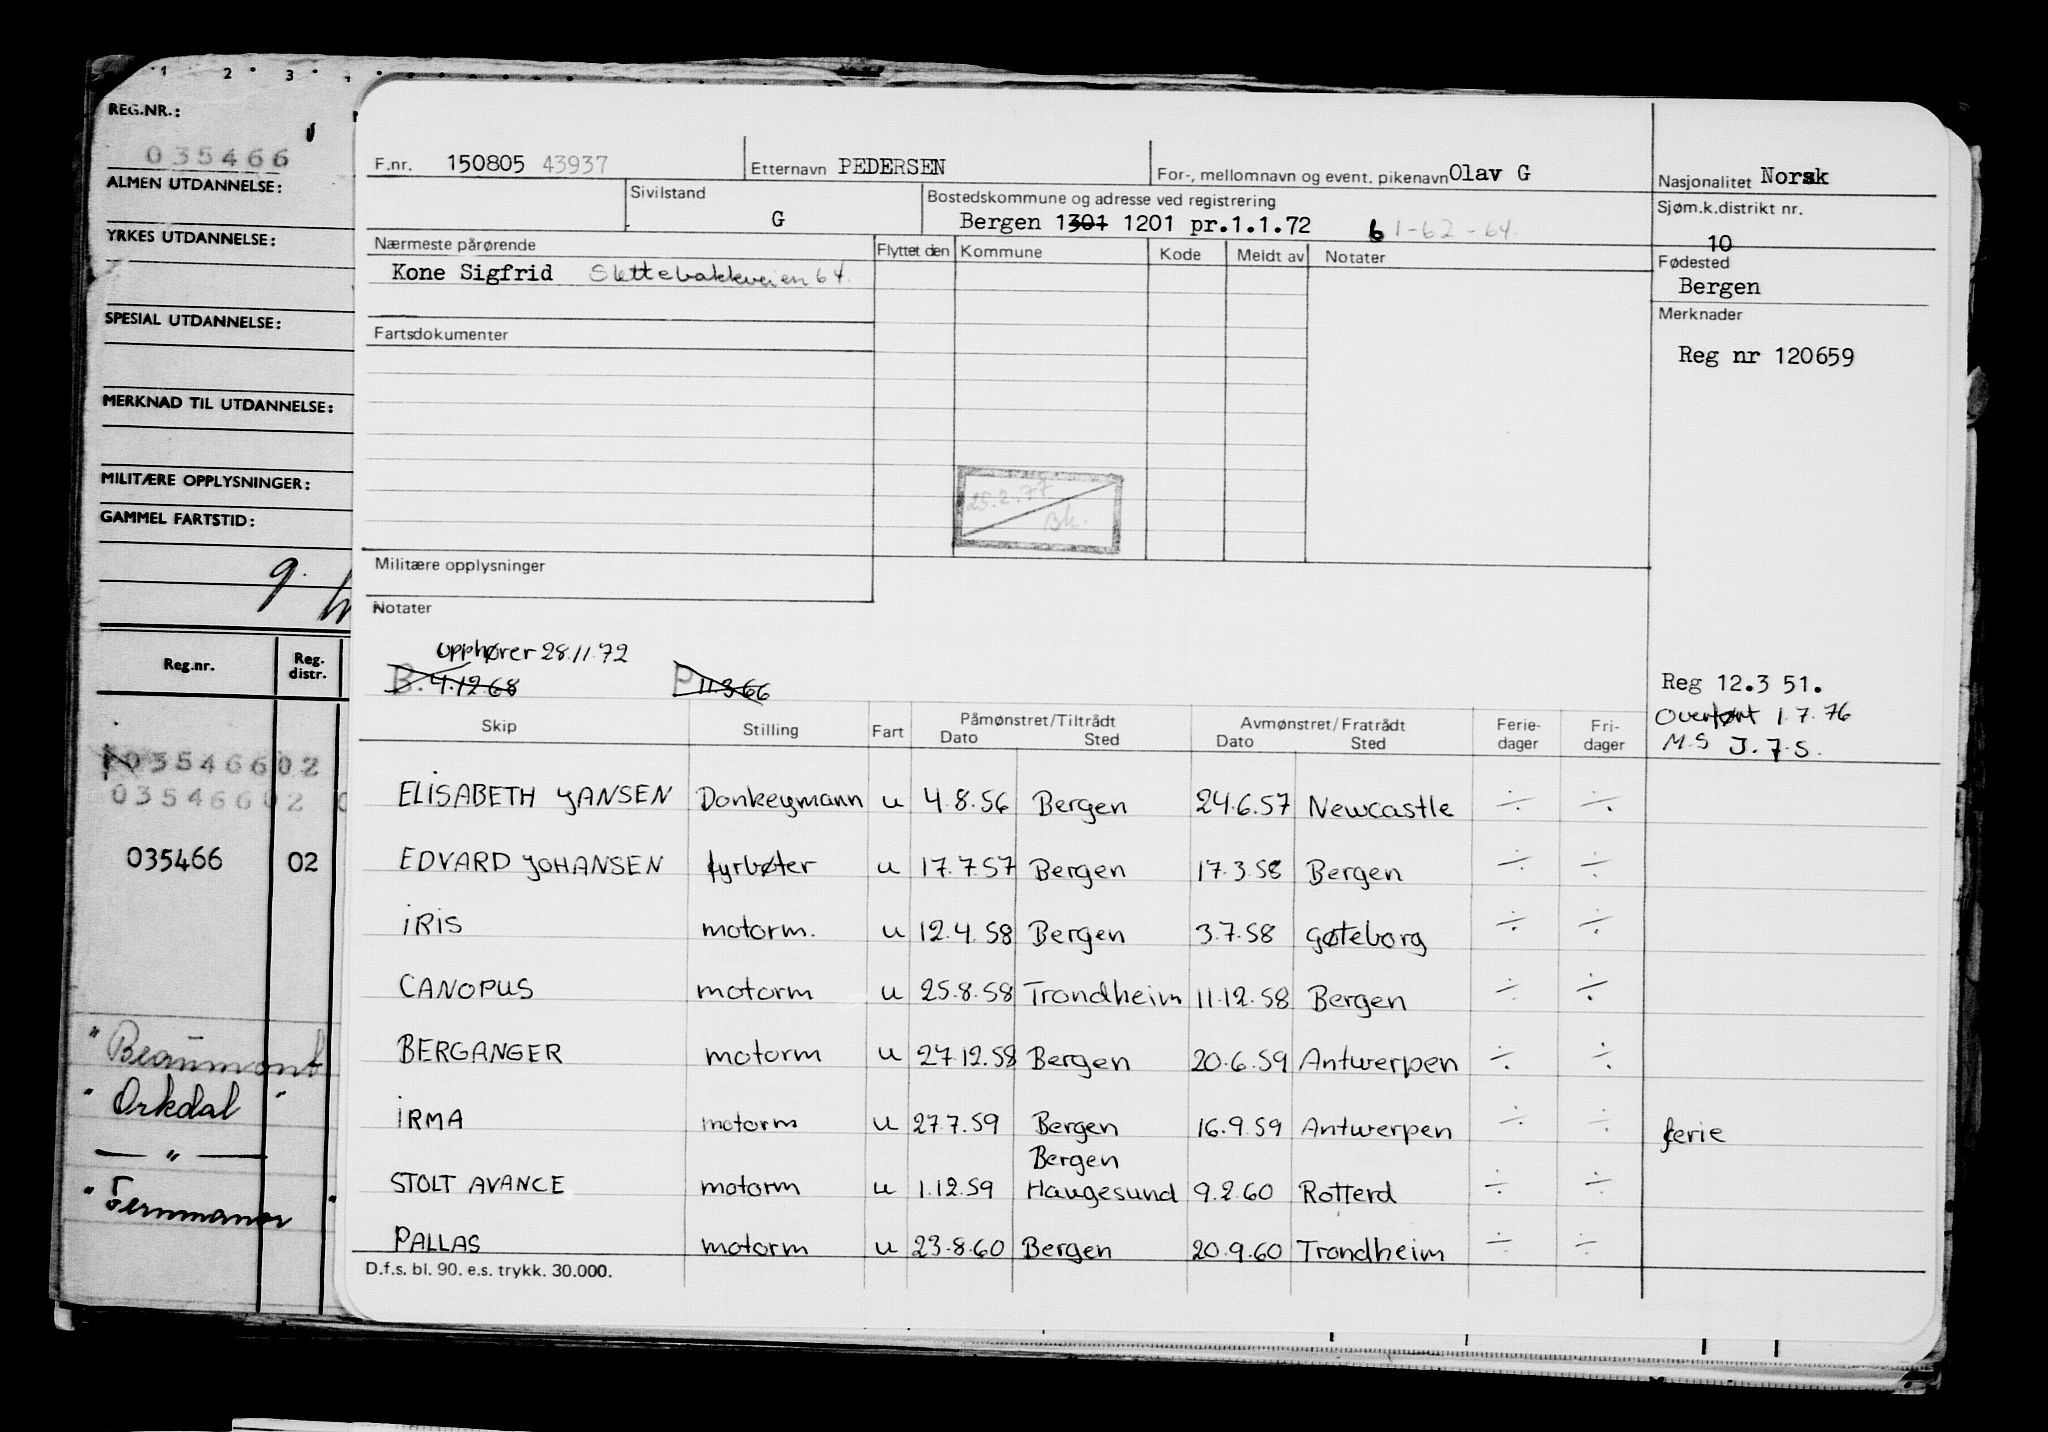 1 2 3
REG.NR.:
035466
ALMEN UTDANNELSE:
YRKES UTDANNELSE:
SPESIAL UTDANNELSE:
MERKNAD TIL UTDANNELSE:
MILITÆRE OPPLYSNINGER:
GAMMEL FARTSTID:
g.
Reg.nr. Reg. distr.
03546602
03546602
035466 02
" Beaumont
" Orkdal "
— " —
" Fernmanor "
F.nr. 150805 43937 Etternavn PEDERSEN For-, mellomnavn og event. pikenavn Olav G Nasjonalitet Norsk
Sivilstand G Bostedskommune og adresse ved registrering Sjøm.k.distrikt nr.
Bergen 1301 1201 pr.1.1.72 61-62-64. 10
Nærmeste pårørende Flyttet den Kommune Kode Meldt av Notater Fødested
Kone Sigfrid Slettebakkveien 64. Bergen
Fartsdokumenter Merknader
Reg nr 120659
25.2.77
Bk.
Militære opplysninger
Notater
Opphører 28.11.72
B. 4.12 68 P 11.3 66
Reg 12.3 51.
Overført 1.7.76
M.S J.7.S.
Skip Stilling Fart Påmønstret/Tiltrådt Avmønstret/Fratrådt Ferie- Fri-
Dato Sted Dato Sted dager dager
ELISABETH JANSEN Donkeymann u 4.8.56 Bergen 24.6.57 Newcastle ÷ ÷.
EDVARD JOHANSEN fyrbøter u 17.7.57 Bergen 17.3.58 Bergen ÷ ÷
IRIS motorm. u 12.4.58 Bergen 3.7.58 Gøteborg ÷ ÷
CANOPUS motorm u 25.8.58 Trondheim 11.12.58 Bergen ÷ ÷
BERGANGER motorm u 27.12.58 Bergen 20.6.59 Antwerpen ÷ ÷
IRMA motorm u 27.7.59 Bergen 16.9.59 Antwerpen ÷ ÷ ferie
Bergen
STOLT AVANCE motorm u 1.12.59 Haugesund 9.2.60 Rotterd ÷ ÷
PALLAS motorm u 23.8.60 Bergen 20.9.60 Trondheim ÷ ÷
D.f.s. bl. 90. e.s. trykk. 30.000.